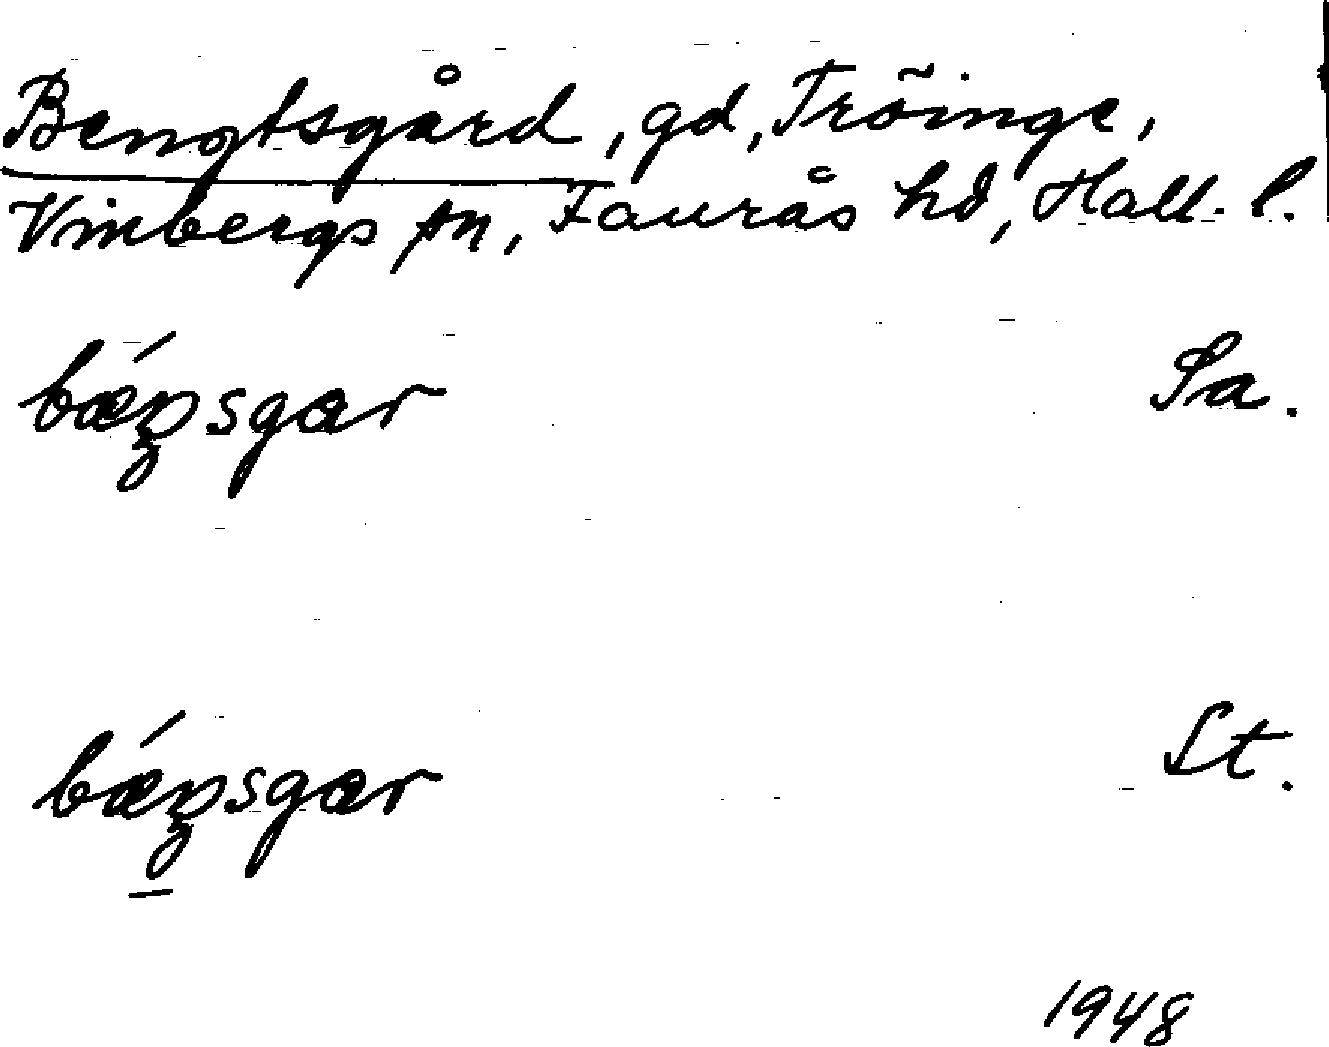 Bengtsgård, gd, Tröinge,
Vinbergs sn, Faurås hd, Hall. l.
Sa.
St.
1948